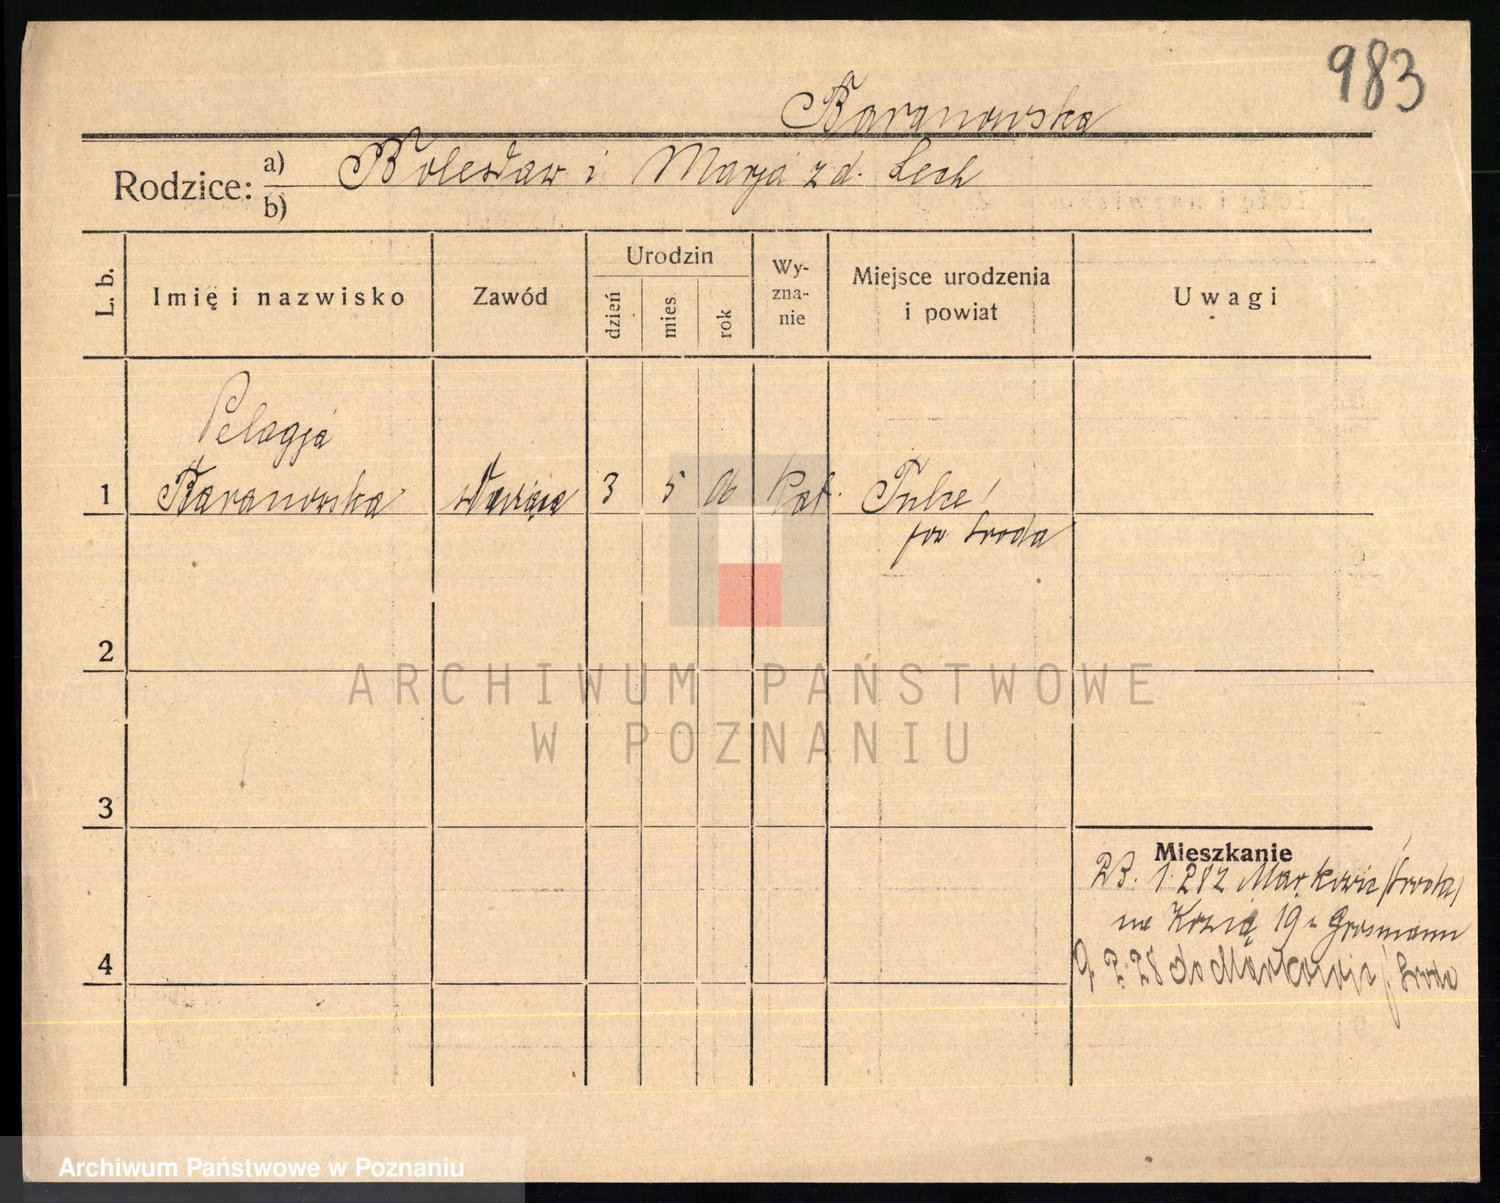 983
Baranowska
Rodzice: a) Bolesław i Marja z d. Lech
b)
L. b.
Imię i nazwisko
Zawód
Urodzin
dzień
mies.
rok
Wy-
zna-
nie
Miejsce urodzenia
i powiat
Uwagi
Pelagja
1 Baranowska służąca 3 5 06 kat.
pow Środa
2
3
4
Mieszkanie
23. 1. 282 Markowic /Środa/
na Kozią 19 u Grosmann
9 2. 28 do Markowic / Środa
ARCHIWUM PAŃSTWOWE
W POZNANIU
Archiwum Państwowe w Poznaniu